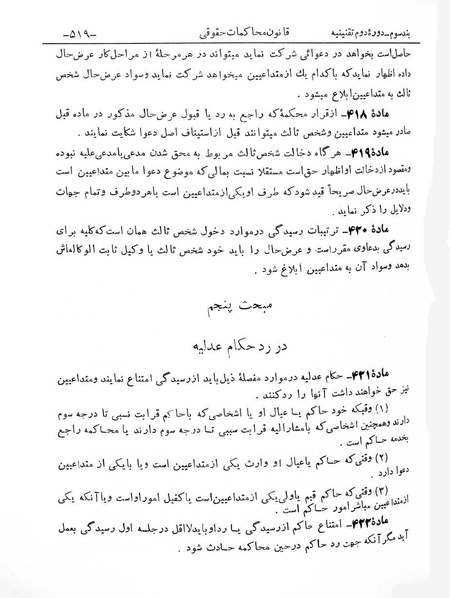 بند سوم - دورهٔ دوم تقنینیه قانون محاکمات حقوقی -۵۱۹-
حاصل است بخواهد در دعوائی شرکت نماید میتواند در هر مرحلهٔ از مراحل کار عرض حال
داده اظهار نماید که باکدام یك از متداعیین میخواهد شرکت نماید وسواد عرض حال شخص
ثالث به متداعیین ابلاغ میشود .
مادهٔ ۴۱۸- از قرار محکمهٔ که راجع به رد یا قبول عرض حال مذکور در ماده قبل
صادر میشود متداعیین وشخص ثالث میتوانند قبل از استیناف اصل دعوا شکایت نمایند .
مادهٔ ۴۱۹- هرگاه دخالت شخص ثالث مربوط به محق شدن مدعی یامدعی علیه نبوده
ومقصود ازدخالت او اظهار حق است مستقلا نسبت بمالی که موضوع دعوا مابین متداعیین است
باید درعرض حال صریحاً قید شود که طرف او یکی ازمتداعیین است یاهردوطرف وتمام جهات
ودلایل را ذکر نماید .
مادهٔ ۴۲۰- ترتیبات رسیدگی درموارد دخول شخص ثالث همان است که کلیه برای
رسیدگی بدعاوی مقرر است و عرض حال را باید خود شخص ثالث یا وکیل ثابت الوکاله‌اش
بدهد وسواد آن به متداعیین ابلاغ شود .
مبحث پنجم
در رد حکام عدلیه
مادهٔ ۴۲۱- حکام عدلیه درموارد مفصلهٔ ذیل باید ازرسیدگی امتناع نمایند ومتداعیین
نیز حق خواهند داشت آنها را ردکنند .
(۱) وقتیکه خود حاکم یا عیال او یا اشخاصی که باحاکم قرابت نسبی تا درجه سوم
دارند وهمچنین اشخاصی که بامشارالیه قرابت سببی تا درجه سوم دارند یا محکمه راجع
بخدمه حاکم است .
(۲) وقتی که حاکم یاعیال او وارث یکی ازمتداعیین است ویا بایکی از متداعیین
دعوا دارد .
(۳) وقتی که حاکم قیم یاولی یکی ازمتداعیین است یاکفیل امور اواست ویا آنکه یکی
ازمتداعیین مباشر امور حاکم است .
مادهٔ ۴۲۲- امتناع حاکم ازرسیدگی یا رد او باید لااقل درجلسه اول رسیدگی بعمل
آید مگر آنکه جهت رد حاکم درحین محاکمه حادث شود .